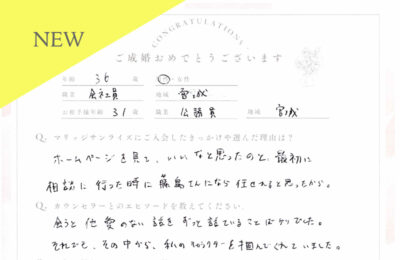 NEW
CONGRATULATIONS
ご成婚おめでとうございます
年齢 36 歳 男性・女性
職業 会社員 地域 宮城
お相手様年齢 31 歳 職業 公務員 地域 宮城
Q. マリッジサンライズにご入会したきっかけや選んだ理由は？
ホームページを見て、いいなと思ったのと、最初に
相談に行った時に藤島さんになら任せれると思ったから。
Q. カウンセラーとのエピソードを教えてください
会うと他愛のない話をずっと話していることばかりでした。
それでも、その中から、私のキャラクターを掴んでくれていました。